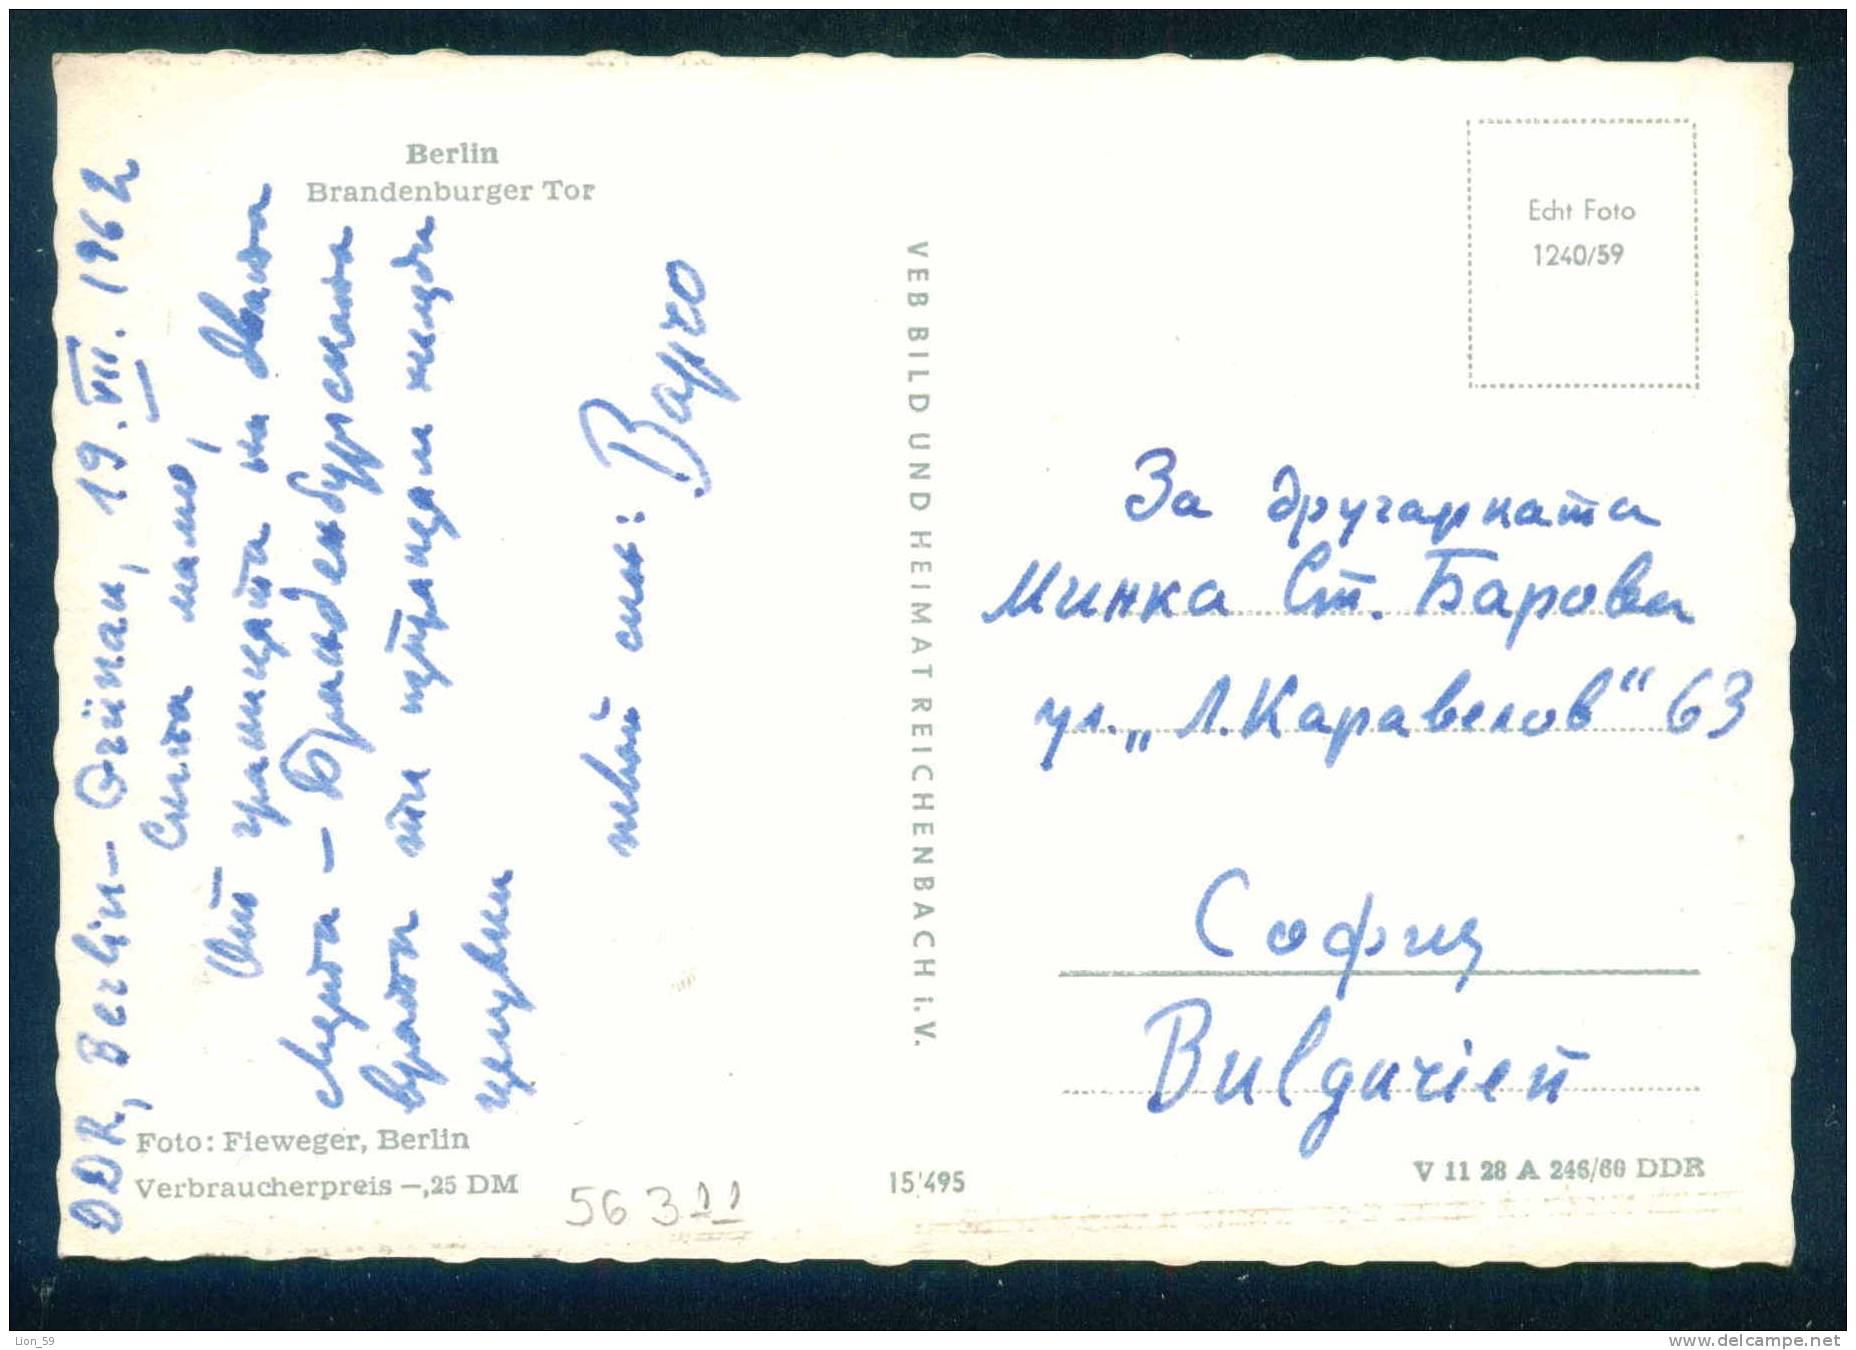 DDR, Berlin - Grünau, 19. VII. 1962
Скъпа мамо,
От границата на двата
свята - Бранденбурската
врата ти изпращам хиляди
целувки
твой син:
Berlin
Brandenburger Tor
Foto: Fieweger, Berlin
Verbraucherpreis -,25 DM
56311
VEB BILD UND HEIMAT REICHENBACH i.V.
15/495
Echt Foto
1240/59
За другарката
Минка Ст. Барова
ул. „Л. Каравелов“ 63
София
Bulgarien
V 11 28 A 246/60 DDR
Lion_59
www.delcampe.net